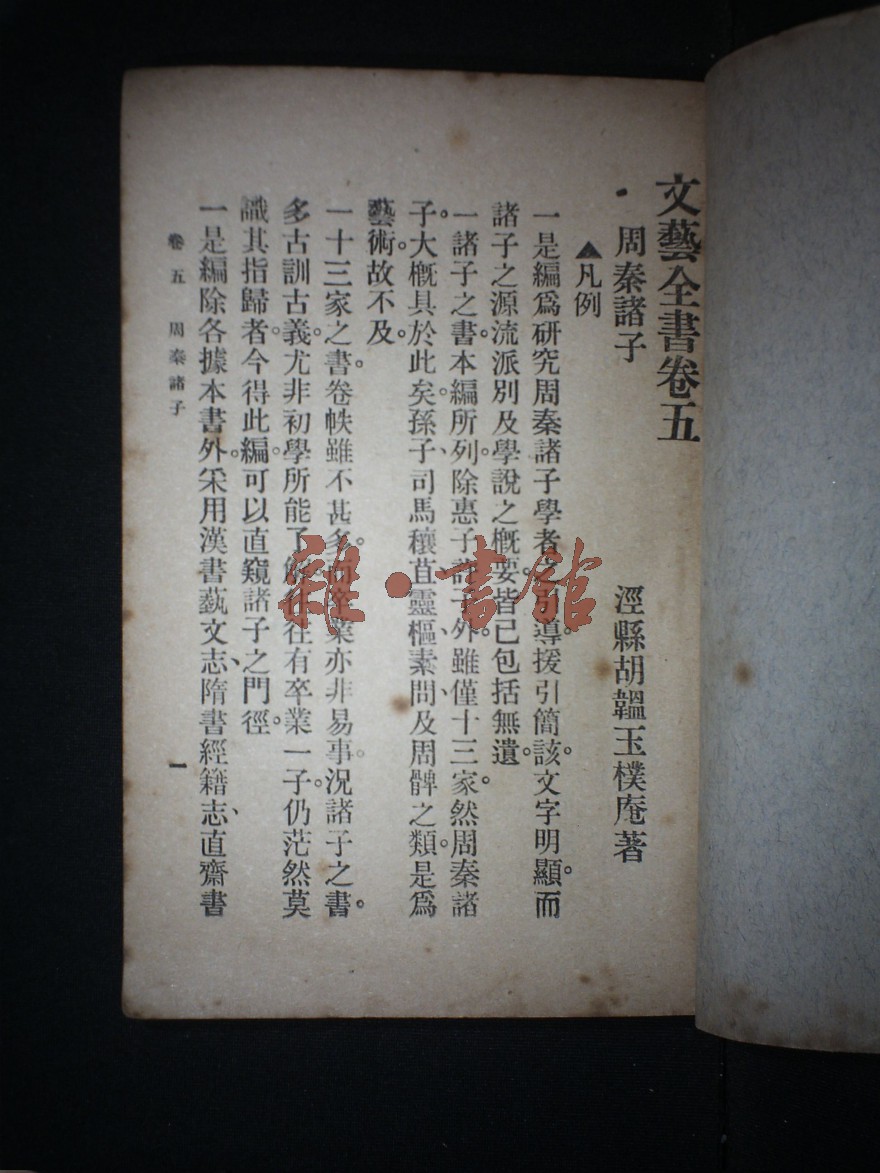 文藝全書卷五
周秦諸子
涇縣胡韞玉樸庵著
▲凡例
一是編爲研究周秦諸子學者之引導援引簡該。文字明顯。而
諸子之源流派別及學說之槪要皆已包括無遺。
一諸子之書本編所列。除惠子 子外。雖僅十三家。然周秦諸
子。大槪具於此矣。孫子、司馬穰苴、靈樞、素問、及周髀之類。是爲
藝術。故不及。
一十三家之書。卷帙雖不甚多。而卒業亦非易事。況諸子之書。
多古訓古義。尤非初學所能了解。往往有卒業一子。仍茫然莫
識其指歸者。今得此編。可以直窺諸子之門徑。
一是編除各據本書外。采用漢書蓺文志、隋書經籍志、直齋書
卷五 周秦諸子
一
雜·書館